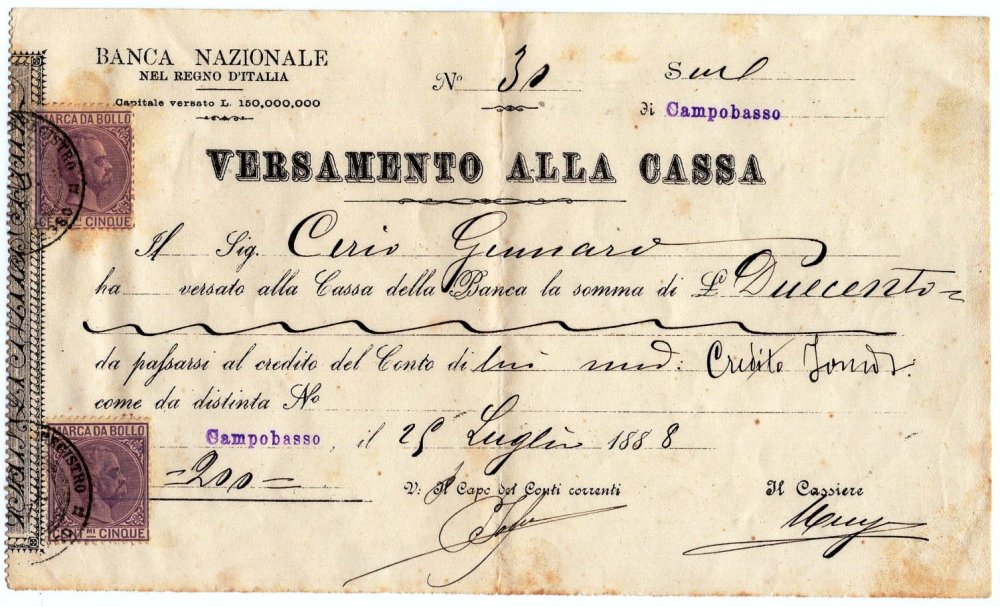 BANCA NAZIONALE
NEL REGNO D'ITALIA
Capitale versato L. 150,000,000
No 30
di Campobasso
MARCA DA BOLLO
CENT.MI CINQUE
VERSAMENTO ALLA CASSA
Il Sig. Cerio Gennaro
ha versato alla Cassa della Banca la somma di L. Duecento=
da passarsi al credito del Conto di lui med: Credito Fond:
come da distinta No
MARCA DA BOLLO
REGISTRO
CENT.MI CINQUE
Campobasso, il 25 Luglio 1888
=200=
V: Il Capo dei Conti correnti
Il Cassiere